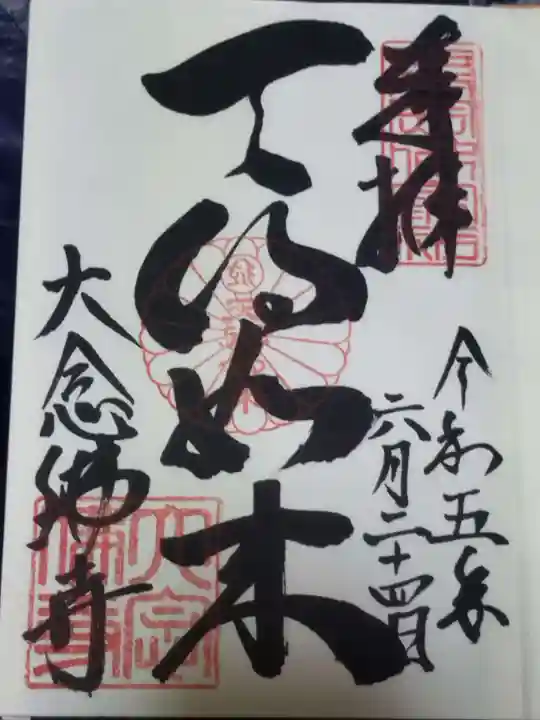 奉拝
令和五年
六月二十四日
天得如来
大念佛寺